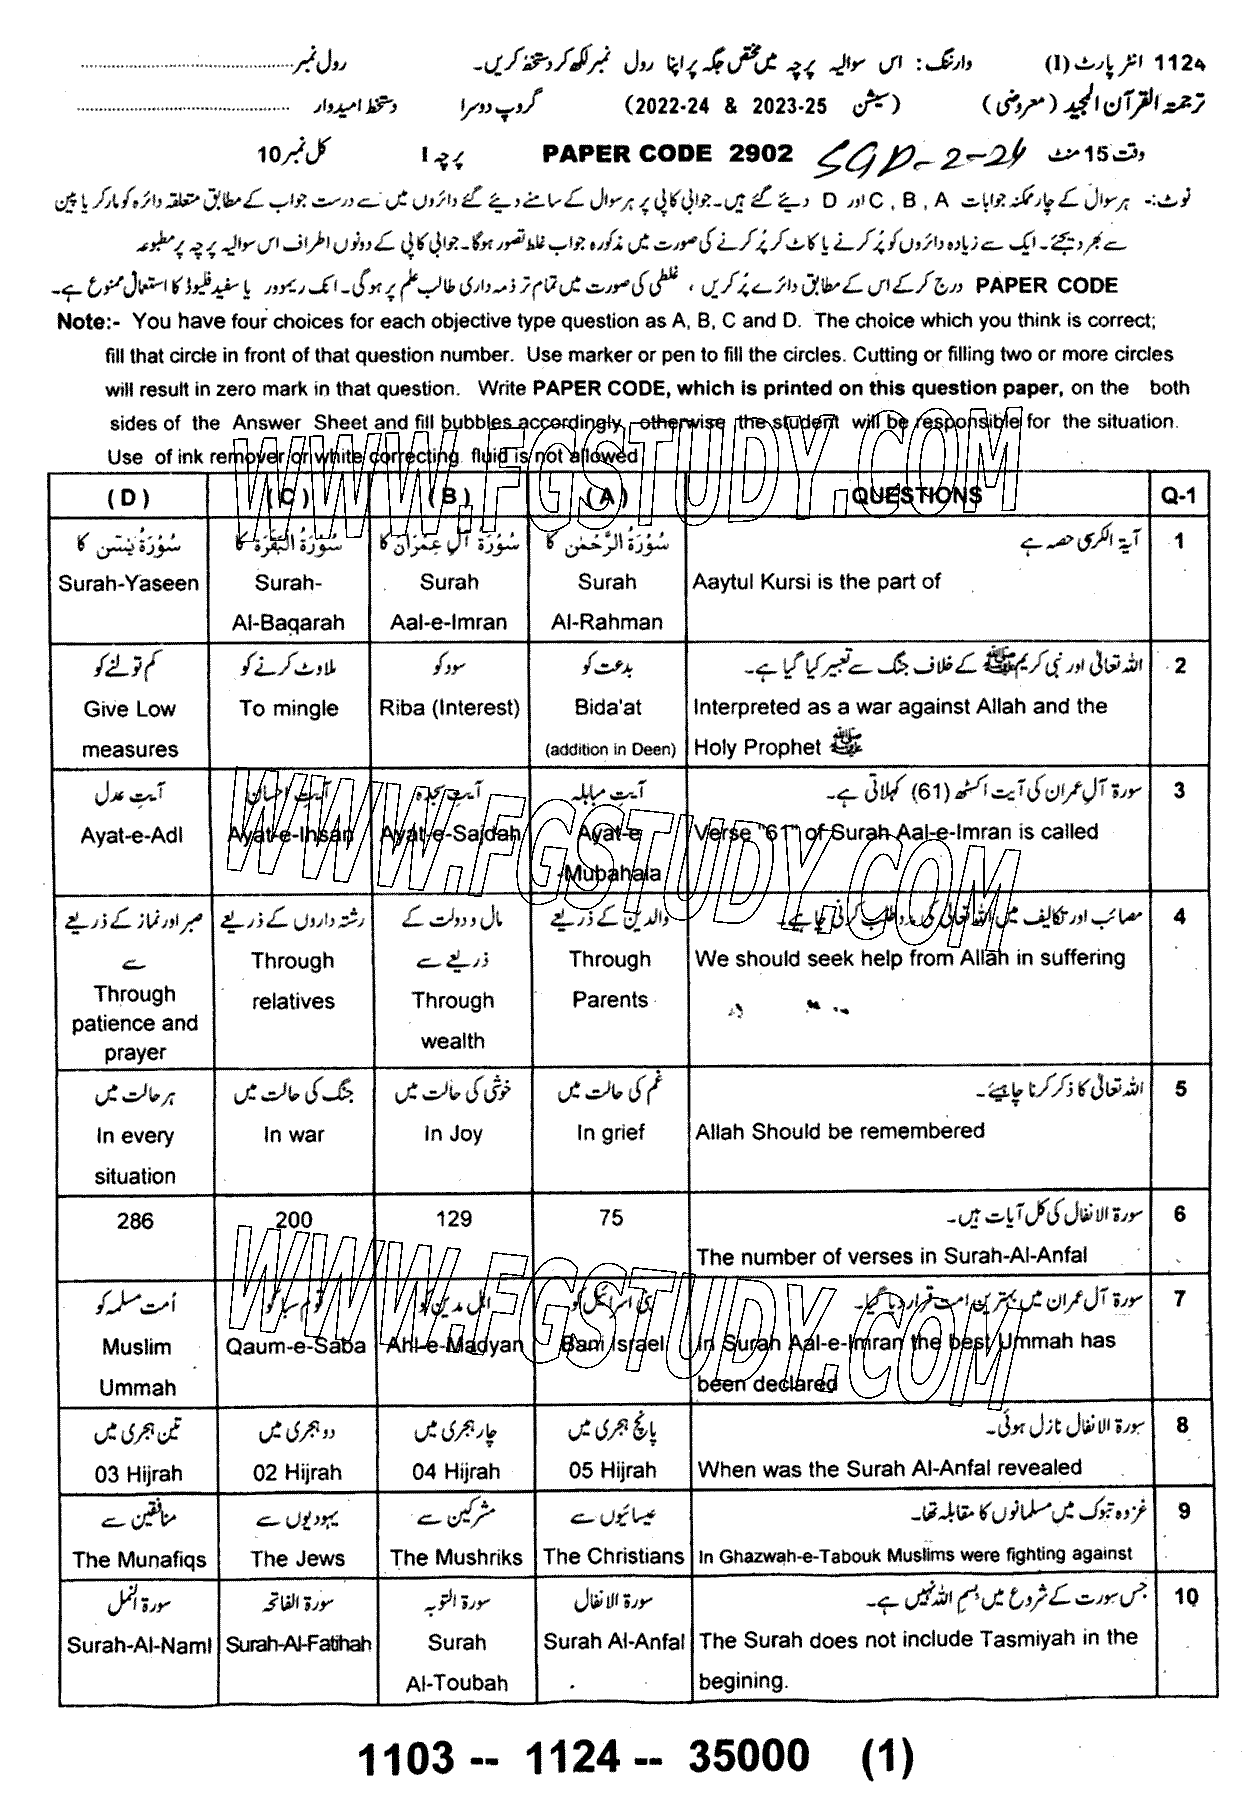 1124 انٹر پارٹ (I) وارننگ: اس سوالیہ پرچہ میں مختص جگہ پر اپنا رول نمبر لکھ کر دستخط کریں۔ رول نمبر
ترجمۃ القرآن المجید (معروضی) (سیشن 2023-25 & 2022-24) گروپ دوسرا دستخط امیدوار
وقت 15 منٹ SGD-2-24 PAPER CODE 2902 پرچہ I کل نمبر 10
نوٹ:- ہر سوال کے چار ممکنہ جوابات A , B , C اور D دیئے گئے ہیں۔ جوابی کاپی پر ہر سوال کے سامنے دیئے گئے دائروں میں سے درست جواب کے مطابق متعلقہ دائرہ کو مارکر یا پین
سے بھر دیجئے۔ ایک سے زیادہ دائروں کو پُر کرنے یا کاٹ کر پُر کرنے کی صورت میں مذکورہ جواب غلط تصور ہوگا۔ جوابی کاپی کے دونوں اطراف اس سوالیہ پرچہ پر مطبوعہ
PAPER CODE درج کر کے اس کے مطابق دائرے پُر کریں ، غلطی کی صورت میں تمام تر ذمہ داری طالب علم پر ہوگی۔ انک ریموور یا سفید فلیوڈ کا استعمال ممنوع ہے۔
Note:- You have four choices for each objective type question as A, B, C and D. The choice which you think is correct;
fill that circle in front of that question number. Use marker or pen to fill the circles. Cutting or filling two or more circles
will result in zero mark in that question. Write PAPER CODE, which is printed on this question paper, on the both
sides of the Answer Sheet and fill bubbles accordingly, otherwise the student will be responsible for the situation.
Use of ink remover or white correcting fluid is not allowed
WWW.FGSTUDY.COM
(D) (C) (B) (A) QUESTIONS Q-1
سُوْرَۃُ یٰسٓن کا سُوْرَۃُ الْبَقَرَۃ کا سُوْرَۃ آلِ عِمْرَان کا سُوْرَۃُ الرَّحْمٰن کا آیۃ الکرسی حصہ ہے 1
Surah-Yaseen Surah- Surah Surah Aaytul Kursi is the part of
Al-Baqarah Aal-e-Imran Al-Rahman
کم تولنے کو ملاوٹ کرنے کو سود کو بدعت کو اللہ تعالیٰ اور نبی کریم ﷺ کے خلاف جنگ سے تعبیر کیا گیا ہے۔ 2
Give Low To mingle Riba (Interest) Bida'at Interpreted as a war against Allah and the
measures (addition in Deen) Holy Prophet ﷺ
آیتِ عدل آیتِ احسان آیتِ سجدہ آیتِ مباہلہ سورۃ آلِ عمران کی آیت اکسٹھ (61) کہلاتی ہے۔ 3
Ayat-e-Adl Ayat-e-Ihsan Ayat-e-Sajdah Ayat-e Verse "61" of Surah Aal-e-Imran is called
-Mubahala
WWW.FGSTUDY.COM
صبر اور نماز کے ذریعے رشتہ داروں کے ذریعے مال و دولت کے والدین کے ذریعے مصائب اور تکالیف میں اللہ تعالیٰ کی مدد طلب کرنی چاہیے۔ 4
سے Through ذریعے سے Through We should seek help from Allah in suffering
Through relatives Through Parents
patience and wealth
prayer
ہر حالت میں جنگ کی حالت میں خوشی کی حالت میں غم کی حالت میں اللہ تعالیٰ کا ذکر کرنا چاہیئے۔ 5
In every In war In Joy In grief Allah Should be remembered
situation
286 200 129 75 سورۃ الانفال کی کل آیات ہیں۔ 6
The number of verses in Surah-Al-Anfal
WWW.FGSTUDY.COM
اُمت مسلمہ کو قوم سبا کو اہل مدین کو بنی اسرائیل کو سورۃ آل عمران میں بہترین امت قرار دیا گیا۔ 7
Muslim Qaum-e-Saba Ahl-e-Madyan Bani Israel In Surah Aal-e-Imran the best Ummah has
Ummah been declared
تین ہجری میں دو ہجری میں چار ہجری میں پانچ ہجری میں سورۃ الانفال نازل ہوئی۔ 8
03 Hijrah 02 Hijrah 04 Hijrah 05 Hijrah When was the Surah Al-Anfal revealed
منافقین سے یہودیوں سے مشرکین سے عیسائیوں سے غزوہ تبوک میں مسلمانوں کا مقابلہ تھا۔ 9
The Munafiqs The Jews The Mushriks The Christians In Ghazwah-e-Tabouk Muslims were fighting against
سورۃ النمل سورۃ الفاتحہ سورۃ التوبہ سورۃ الانفال جس سورت کے شروع میں بسم اللہ نہیں ہے۔ 10
Surah-Al-Naml Surah-Al-Fatihah Surah Surah Al-Anfal The Surah does not include Tasmiyah in the
Al-Toubah begining.
1103 -- 1124 -- 35000 (1)